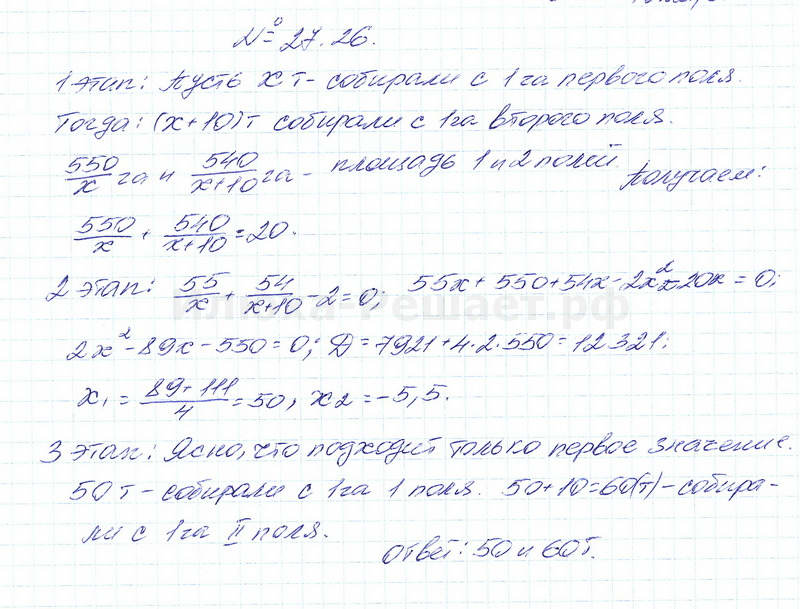 № 27.26.
1 этап: Пусть x т - собирали с 1 га первого поля.
Тогда: (x+10) т собирали с 1 га второго поля.
550/x га и 540/(x+10) га - площадь 1 и 2 полей. Получаем:
550/x + 540/(x+10) = 20.
2 этап: 55/x + 54/(x+10) - 2 = 0; 55x + 550 + 54x - 2x² - 20x = 0;
2x² - 89x - 550 = 0; D = 7921 + 4·2·550 = 12321;
x₁ = (89 + 111)/4 = 50, x₂ = -5,5.
3 этап: Ясно, что подходит только первое значение.
50 т - собирали с 1 га 1 поля. 50+10=60(т) - собира-
ли с 1 га II поля.
Ответ: 50 и 60 т.